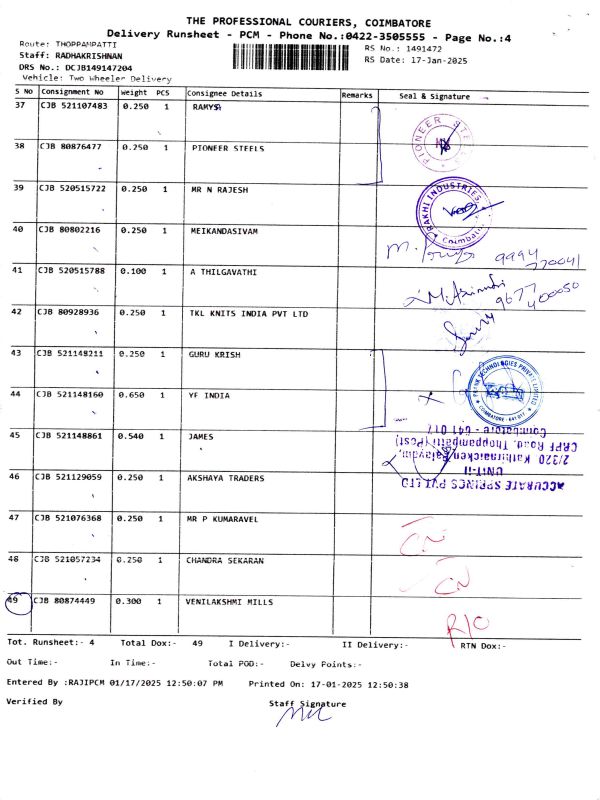 THE PROFESSIONAL COURIERS, COIMBATORE
Delivery Runsheet - PCM - Phone No.:0422-3505555 - Page No.:4
Route: THOPPAMPATTI
RS No.: 1491472
Staff: RADHAKRISHNAN
RS Date: 17-Jan-2025
DRS No.: DCJB149147204
Vehicle: Two Wheeler Delivery
S No Consignment No Weight PCS Consignee Details Remarks Seal & Signature
37 CJB 521107483 0.250 1 RAMYSA
38 CJB 80876477 0.250 1 PIONEER STEELS
PIONEER
39 CJB 520515722 0.250 1 MR N RAJESH
RAKHI INDUSTRIES
Coimbatore
40 CJB 80802216 0.250 1 MEIKANDASIVAM
9994
770041
41 CJB 520515788 0.100 1 A THILGAVATHI
9677
400050
42 CJB 80928936 0.250 1 TKL KNITS INDIA PVT LTD
43 CJB 521148211 0.250 1 GURU KRISH
TECHNOLOGIES PRIVATE LIMITED
COIMBATORE - 641 017
44 CJB 521148160 0.650 1 YF INDIA
45 CJB 521148861 0.540 1 JAMES
ACCURATE SPRINGS PVT LTD
UNIT-II
2/320 Kathirnaicken Palayam,
CRPF Road, Thoppampatti(Post)
Coimbatore - 641 017
46 CJB 521129059 0.250 1 AKSHAYA TRADERS
47 CJB 521076368 0.250 1 MR P KUMARAVEL
CN
48 CJB 521057234 0.250 1 CHANDRA SEKARAN
CN
49 CJB 80874449 0.300 1 VENILAKSHMI MILLS
R/O
Tot. Runsheet:- 4 Total Dox:- 49 I Delivery:- II Delivery:- RTN Dox:-
Out Time:- In Time:- Total POD:- Delvy Points:-
Entered By :RAJIPCM 01/17/2025 12:50:07 PM Printed On: 17-01-2025 12:50:38
Verified By Staff Signature